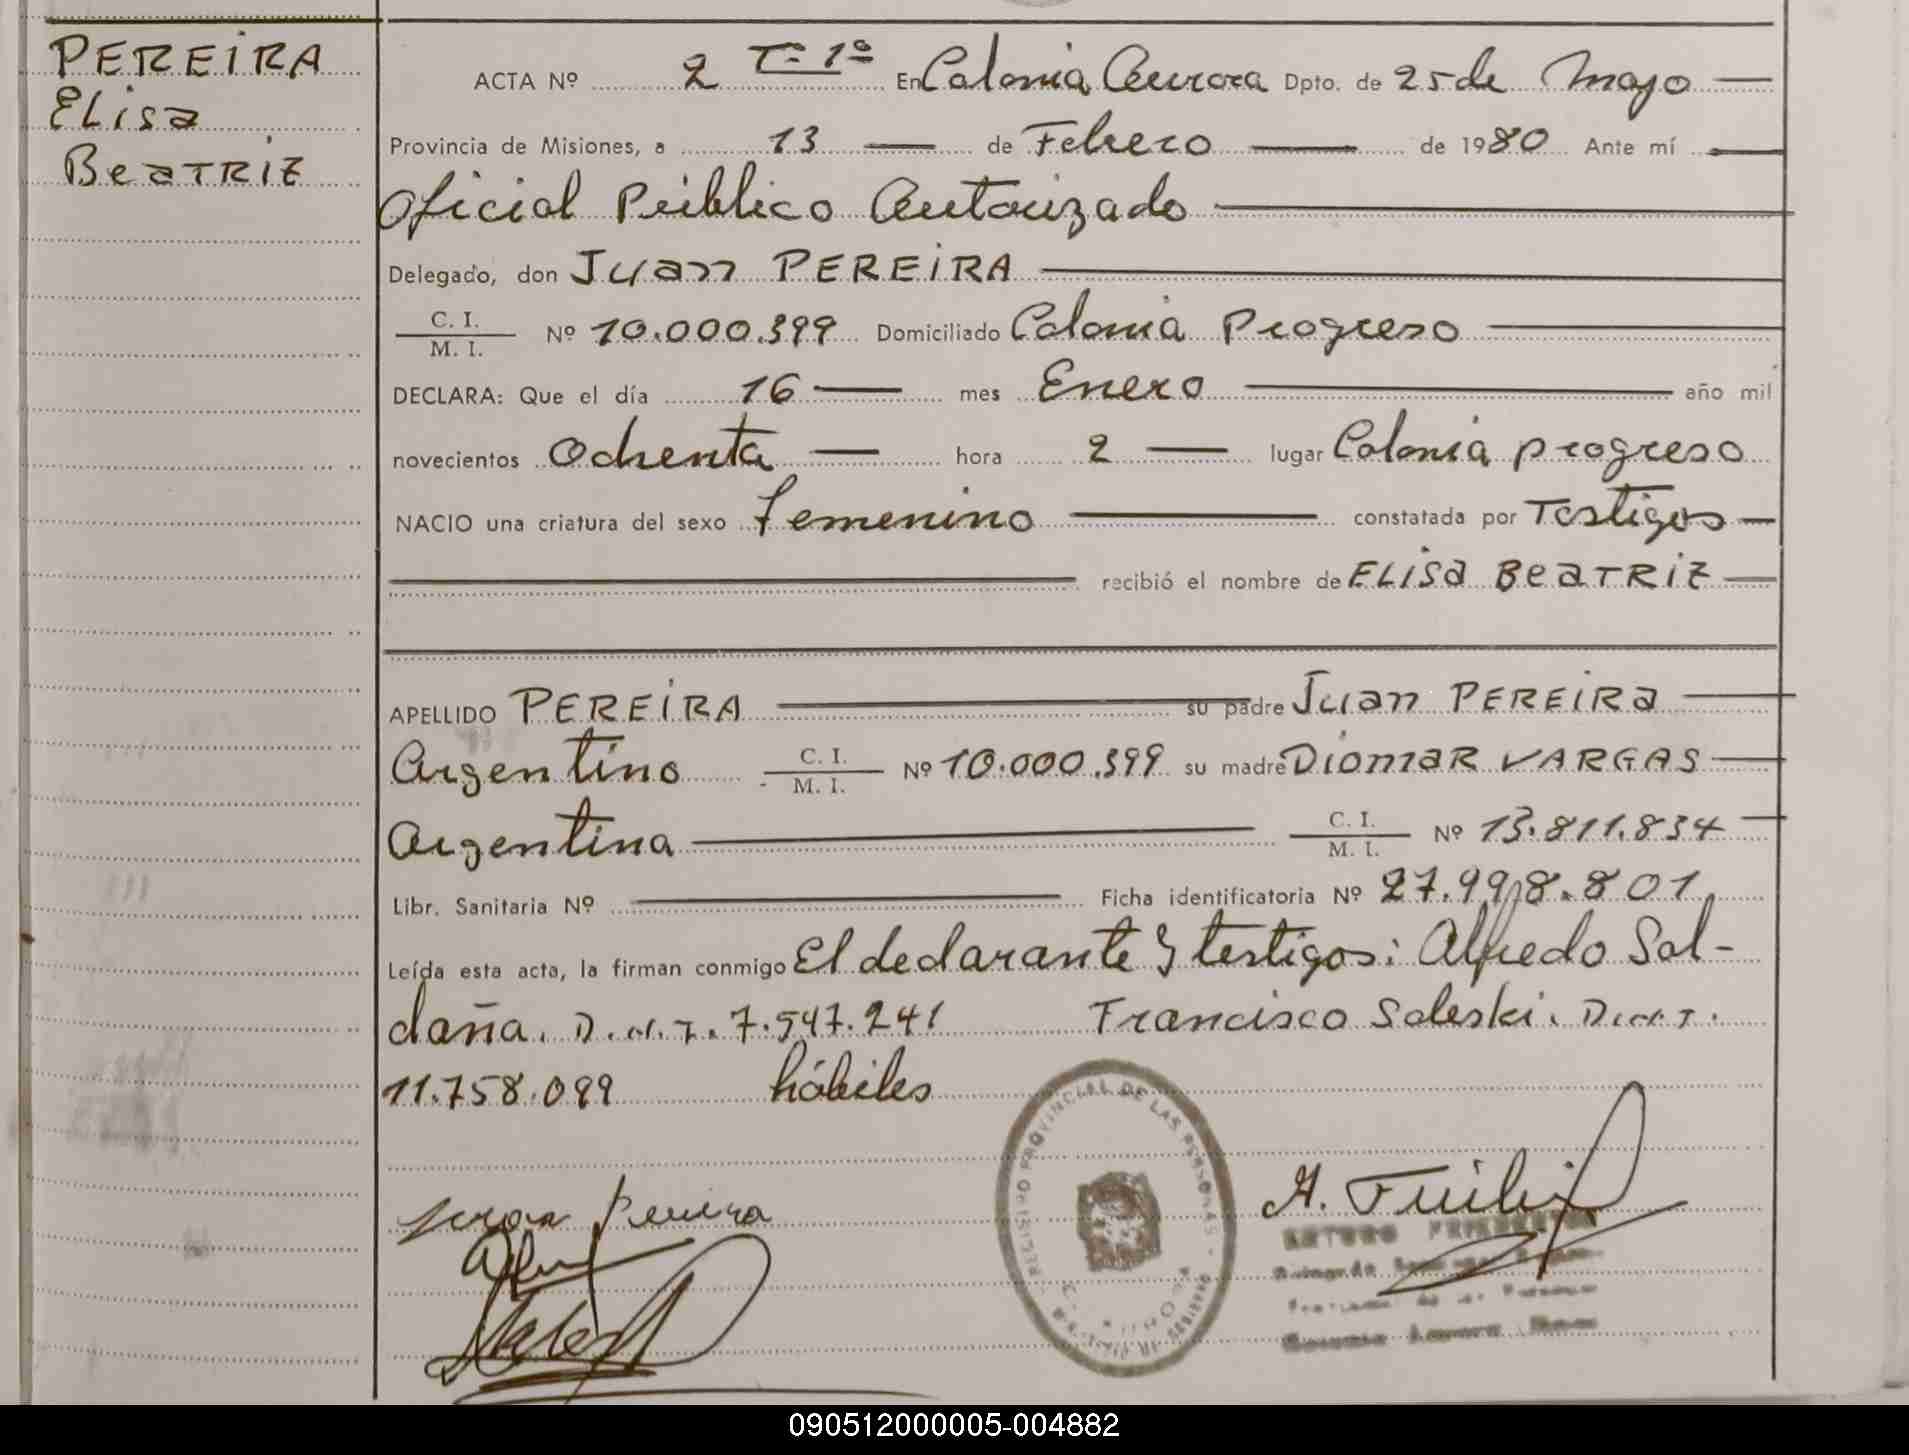 PEREIRA
ELisa
BeaTRIZ
ACTA Nº 2 Tº 1º En Colonia Aurora Dpto. de 25 de Mayo
Provincia de Misiones, a 13 de Febrero de 1980 Ante mí
Oficial Público Autorizado
Delegado, don Juan PEREIRA
C. I.
M. I. Nº 10.000.399 Domiciliado Colonia Progreso
DECLARA: Que el día 16 mes Enero año mil
novecientos Ochenta hora 2 lugar Colonia progreso
NACIO una criatura del sexo femenino constatada por Testigos
recibió el nombre de ELisa BeaTRIZ
APELLIDO PEREIRA su padre Juan PEREIRa
Argentino C. I.
M. I. Nº 10.000.399 su madre DiomaR VARGAS
Argentina C. I.
M. I. Nº 13.811.834
Libr. Sanitaria Nº Ficha identificatoria Nº 27.998.801
Leída esta acta, la firman conmigo El declarante y testigos: Alfredo Sal-
daña. D.N.I. 7.547.241 Francisco Soleski. D.N.I.
11.758.099 hábiles
REGISTRO PROVINCIAL DE LAS PERSONAS
Pereira
ARTURO
Colonia Aurora
090512000005-004882